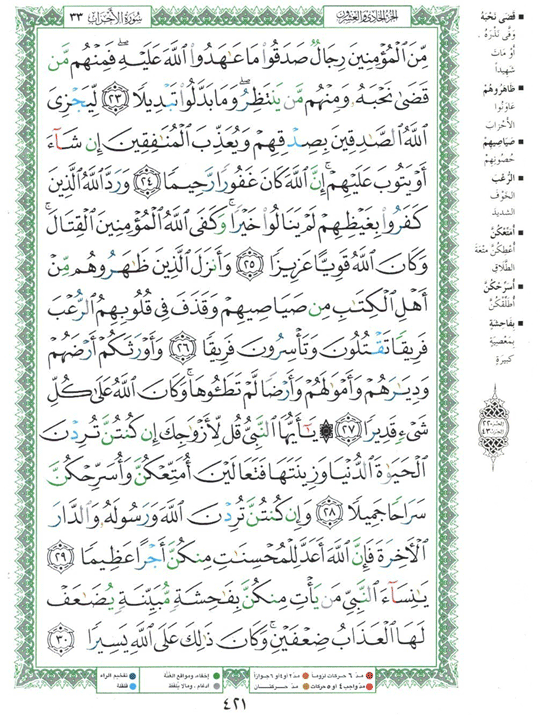 سُورَةُ الأَحْزَابِ ٣٣
الجُزءُ الحَادِي وَالعِشرُونَ
مِّنَ ٱلْمُؤْمِنِينَ رِجَالٌ صَدَقُوا۟ مَا عَـٰهَدُوا۟ ٱللَّهَ عَلَيْهِ ۖ فَمِنْهُم مَّن
قَضَىٰ نَحْبَهُۥ وَمِنْهُم مَّن يَنتَظِرُ ۖ وَمَا بَدَّلُوا۟ تَبْدِيلًا ٢٣ لِّيَجْزِىَ
ٱللَّهُ ٱلصَّـٰدِقِينَ بِصِدْقِهِمْ وَيُعَذِّبَ ٱلْمُنَـٰفِقِينَ إِن شَآءَ
أَوْ يَتُوبَ عَلَيْهِمْ ۚ إِنَّ ٱللَّهَ كَانَ غَفُورًا رَّحِيمًا ٢٤ وَرَدَّ ٱللَّهُ ٱلَّذِينَ
كَفَرُوا۟ بِغَيْظِهِمْ لَمْ يَنَالُوا۟ خَيْرًا ۚ وَكَفَى ٱللَّهُ ٱلْمُؤْمِنِينَ ٱلْقِتَالَ ۚ
وَكَانَ ٱللَّهُ قَوِيًّا عَزِيزًا ٢٥ وَأَنزَلَ ٱلَّذِينَ ظَـٰهَرُوهُم مِّنْ
أَهْلِ ٱلْكِتَـٰبِ مِن صَيَاصِيهِمْ وَقَذَفَ فِى قُلُوبِهِمُ ٱلرُّعْبَ
فَرِيقًا تَقْتُلُونَ وَتَأْسِرُونَ فَرِيقًا ٢٦ وَأَوْرَثَكُمْ أَرْضَهُمْ
وَدِيَـٰرَهُمْ وَأَمْوَٰلَهُمْ وَأَرْضًا لَّمْ تَطَـُٔوهَا ۚ وَكَانَ ٱللَّهُ عَلَىٰ كُلِّ
شَىْءٍ قَدِيرًا ٢٧ ۞ يَـٰٓأَيُّهَا ٱلنَّبِىُّ قُل لِّأَزْوَٰجِكَ إِن كُنتُنَّ تُرِدْنَ
ٱلْحَيَوٰةَ ٱلدُّنْيَا وَزِينَتَهَا فَتَعَالَيْنَ أُمَتِّعْكُنَّ وَأُسَرِّحْكُنَّ
سَرَاحًا جَمِيلًا ٢٨ وَإِن كُنتُنَّ تُرِدْنَ ٱللَّهَ وَرَسُولَهُۥ وَٱلدَّارَ
ٱلْـَٔاخِرَةَ فَإِنَّ ٱللَّهَ أَعَدَّ لِلْمُحْسِنَـٰتِ مِنكُنَّ أَجْرًا عَظِيمًا ٢٩
يَـٰنِسَآءَ ٱلنَّبِىِّ مَن يَأْتِ مِنكُنَّ بِفَـٰحِشَةٍ مُّبَيِّنَةٍ يُضَـٰعَفْ
لَهَا ٱلْعَذَابُ ضِعْفَيْنِ ۚ وَكَانَ ذَٰلِكَ عَلَى ٱللَّهِ يَسِيرًا ٣٠
قَضَى نَحْبَهُ
وَفَّى نَذْرَهُ
أَوْ مَاتَ
شَهِيداً
ظَاهَرُوهُمْ
عَاوَنُوا
الأَحْزَابَ
صَيَاصِيهِمْ
حُصُونِهِمْ
الرُّعْبَ
الخَوْفَ
الشديدَ
أُمَتِّعْكُنَّ
أُعْطِكُنَّ مُتْعَةَ
الطَّلَاقِ
أُسَرِّحْكُنَّ
أُطَلِّقْكُنَّ
بِفَاحِشَةٍ
بِمَعْصِيَةٍ
كَبِيرَةٍ
مدّ ٦ حركات لزوماً
مدّ ٢ أو ٤ أو ٦ جوازاً
إخفاء، ومواقع الغُنَّة
تفخيم الراء
مدّ واجب ٤ أو ٥ حركات
مدّ حركتان
إدغام، وما لا يُلفَظ
قلقلة
٤٢١